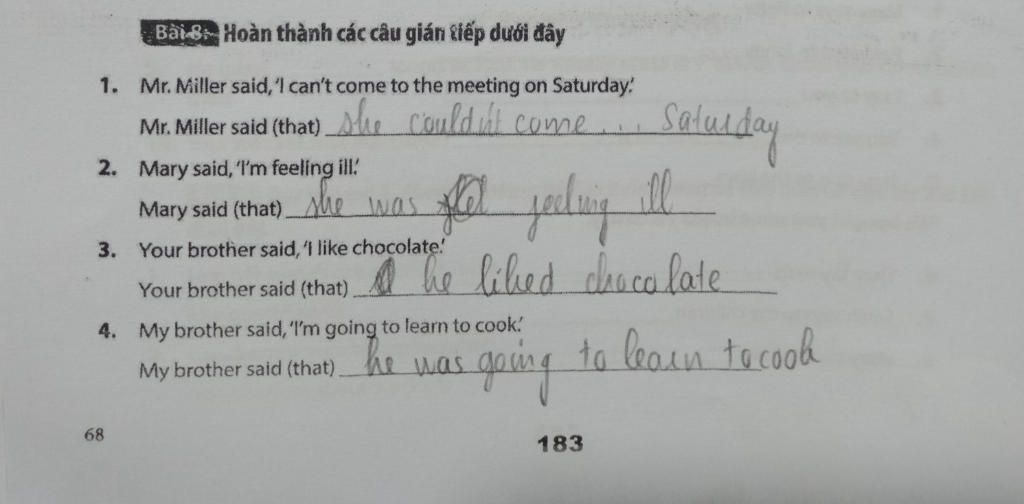 Bài 8: Hoàn thành các câu gián tiếp dưới đây
1. Mr. Miller said, 'I can't come to the meeting on Saturday.'
Mr. Miller said (that) she couldn't come ... Saturday
2. Mary said, 'I'm feeling ill.'
Mary said (that) she was feeling ill
3. Your brother said, 'I like chocolate.'
Your brother said (that) he liked chocolate
4. My brother said, 'I'm going to learn to cook.'
My brother said (that) he was going to learn to cook
68
183